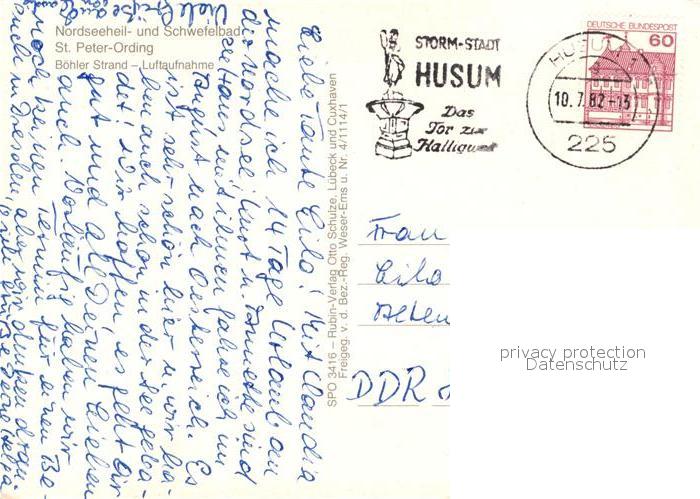 Nordseeheil- und Schwefelbad
St. Peter-Ording
Böhler Strand – Luftaufnahme
STORM-STADT
HUSUM
Das
Tor zur
Halligwelt
DEUTSCHE BUNDESPOST
60
HUSUM 1
10.7.82-13
225
SPO 3416 – Rubin-Verlag Otto Schulze, Lübeck und Cuxhaven
Freigeg. v. d. Bez.-Reg. Weser-Ems u. Nr. 4/1114/1
Liebe Tante Cilo! Mit Claudia
mache ich 14 Tage Urlaub an
der Nordsee, Horst u. Annette sind
zu Haus, mit ihnen fahre ich im
August nach Oesterreich. Es
ist sehr schön hier u. wir ha-
ben auch schon in der See geba-
det! Wir hoffen es geht Dir
gut und all Deinen Lieben
auch. Vorläufig haben wir
noch keinen Termin für einen Be-
such in Dresden, aber wir denken dran.
Viele Grüße
Frau
Cilo
Alten
DDR
privacy protection
Datenschutz